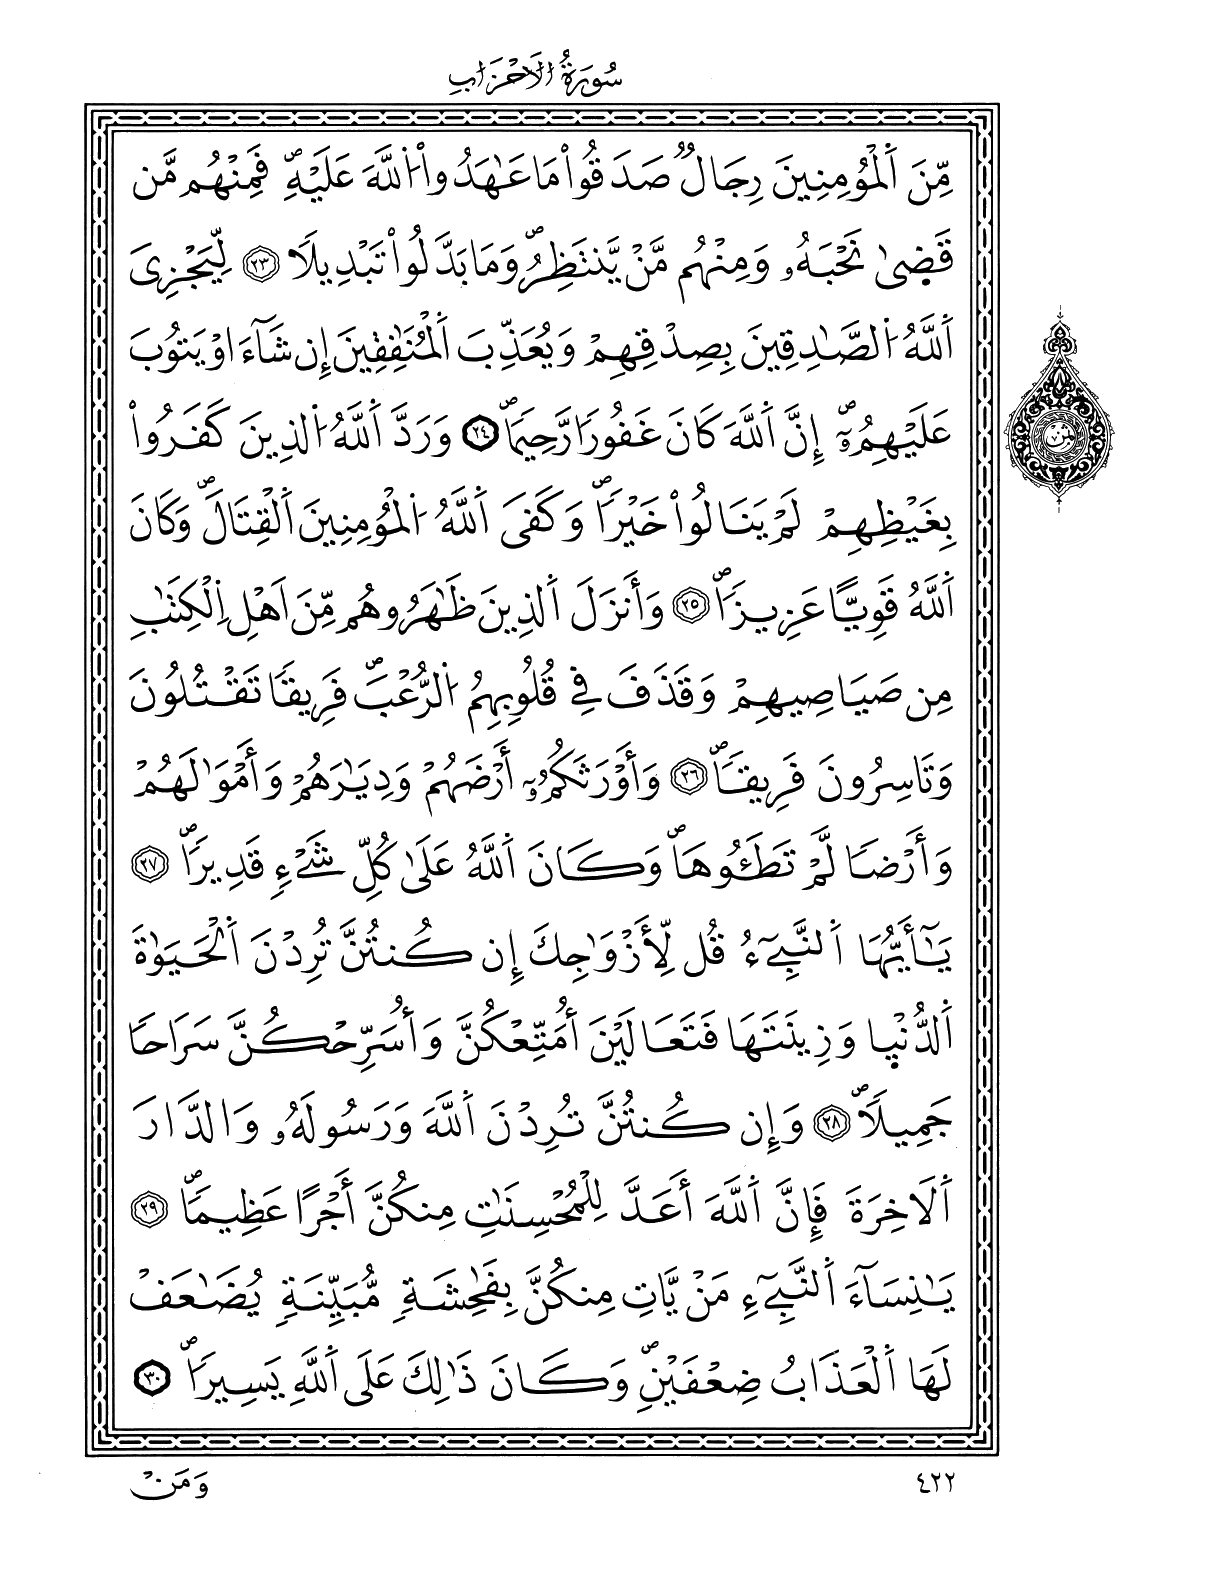 سُورَةُ الْأَحْزَابِ
مِّنَ اَ۬لْمُؤْمِنِينَ رِجَالٞ صَدَقُواْ مَا عَٰهَدُواْ اُ۬للَّهَ عَلَيْهِۖ فَمِنْهُم مَّن
قَضَىٰ نَحْبَهُۥ وَمِنْهُم مَّنْ يَّنتَظِرُۖ وَمَا بَدَّلُواْ تَبْدِيلاٗ ٢٣ لِّيَجْزِيَ
اَ۬للَّهُ اُ۬لصَّٰدِقِينَ بِصِدْقِهِمْ وَيُعَذِّبَ اَ۬لْمُنَٰفِقِينَ إِن شَآءَ اَوْ يَتُوبَ
عَلَيْهِمُۥٓۖ إِنَّ اَ۬للَّهَ كَانَ غَفُوراٗ رَّحِيماٗۖ ٢٤ وَرَدَّ اَ۬للَّهُ اُ۬لذِينَ كَفَرُواْ
بِغَيْظِهِمْ لَمْ يَنَالُواْ خَيْراٗۖ وَكَفَى اَ۬للَّهُ اُ۬لْمُؤْمِنِينَ اَ۬لْقِتَالَۖ وَكَانَ
اَ۬للَّهُ قَوِيّاً عَزِيزاٗۖ ٢٥ وَأَنزَلَ اَ۬لذِينَ ظَٰهَرُوهُم مِّنَ اَهْلِ اِ۬لْكِتَٰبِ
مِن صَيَاصِيهِمْ وَقَذَفَ فِے قُلُوبِهِمُ اُ۬لرُّعْبَۖ فَرِيقاٗ تَقْتُلُونَ
وَتَاسِرُونَ فَرِيقاٗۖ ٢٦ وَأَوْرَثَكُمُۥٓ أَرْضَهُمْ وَدِيَٰرَهُمْ وَأَمْوَٰلَهُمْ
وَأَرْضاٗ لَّمْ تَطَـُٔوهَاۖ وَكَانَ اَ۬للَّهُ عَلَىٰ كُلِّ شَےْءٖ قَدِيراٗۖ ٢٧
يَٰٓأَيُّهَا اَ۬لنَّبِيٓءُ قُل لِّأَزْوَٰجِكَ إِن كُنتُنَّ تُرِدْنَ اَ۬لْحَيَوٰةَ
اَ۬لدُّنْيَا وَزِينَتَهَا فَتَعَالَيْنَ أُمَتِّعْكُنَّ وَأُسَرِّحْكُنَّ سَرَاحاٗ
جَمِيلاٗۖ ٢٨ وَإِن كُنتُنَّ تُرِدْنَ اَ۬للَّهَ وَرَسُولَهُۥ وَالدَّارَ
اَ۬لَاخِرَةَ فَإِنَّ اَ۬للَّهَ أَعَدَّ لِلْمُحْسِنَٰتِ مِنكُنَّ أَجْراً عَظِيماٗۖ ٢٩
يَٰنِسَآءَ اَ۬لنَّبِيٓءِ مَنْ يَّاتِ مِنكُنَّ بِفَٰحِشَةٖ مُّبَيِّنَةٖ يُضَٰعَفْ
لَهَا اَ۬لْعَذَابُ ضِعْفَيْنِۖ وَكَانَ ذَٰلِكَ عَلَى اَ۬للَّهِ يَسِيراٗۖ ٣٠
٤٢٢
وَمَنْ